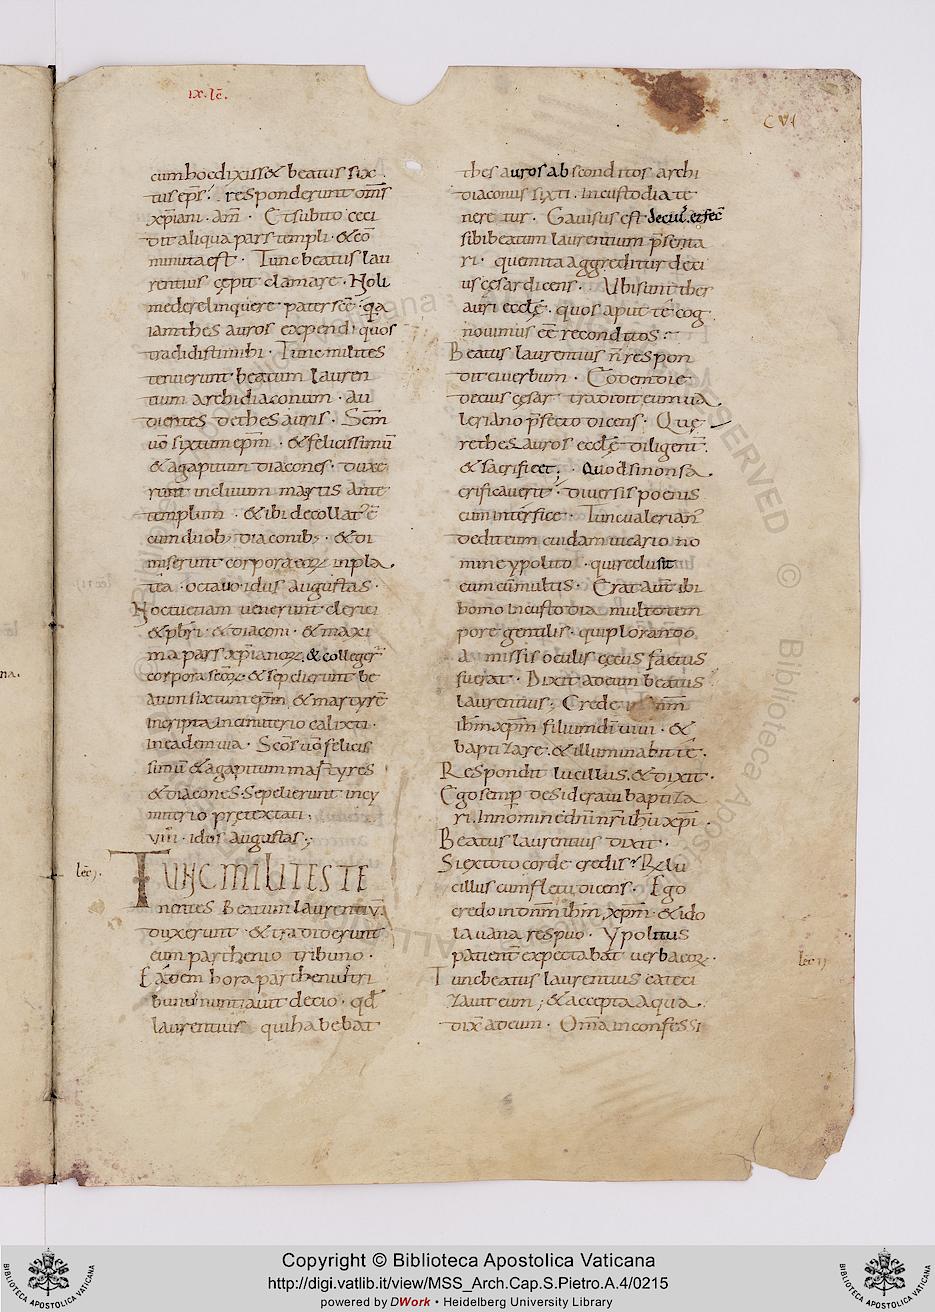 ix. lc̄.
CVI
cum hoc dixiss& beatus six
tus ep̄s. responderunt om̄s
xp̄iani. am̄. Et subito ceci
dit aliqua pars templi. & cō
minuta est. Tunc beatus lau
rentius cępit clamare. Noli
me derelinquere pater sc̄e. q̄a
iam thesauros expendi quos
tradidisti mihi. Tunc milites
tenuerunt beatum lauren
tium archidiaconum. au
dientes de thesauris. Sc̄m
uō sixtum ep̄m. & felicissimū
& agapitum diacones. duxe
runt in cliuum martis ante
templum. & ibi decollat' ē
cum duob; diaconib;. & di
miserunt corpora eoꝝ in pla
tea. octauo idus augustas.
Noctu etiam uenerunt clerici
& pb̄ri. & diaconi. & maxi
ma pars xp̄ianoꝝ. & colleger̄
corpora sc̄oꝝ. & sepelierunt be
atum sixtum ep̄m & martyrē
in cripta in cimiterio calixti.
in eadem uia. Sc̄os uō felicis
simū & agapitum martyres
& diacones sepelierunt in cy
miterio prętextati.
viii. idus augustas;
lēc i.
TUNC MILITES TE
nentes Beatum laurentiū
duxerunt & tradiderunt
eum parthenio tribuno.
Eadem hora parthenius tri
bunus nuntiauit decio. qd̄
laurentius qui habebat
thesauros absconditos archi
diaconus sixti. in custodia te
neretur. Gauisus est decius. et fec̄
sibi beatum laurentium p̄senta
ri. quem ita aggreditur deci
us cęsar dicens. Ubi sunt thes
auri ecclę. quos aput tē cog
nouimus eē reconditos.
Beatus laurentius n̄ respon
dit ei uerbum. Eodem die
decius cęsar tradidit eum ua
leriano p̄fecto dicens. Quę
re thesauros ecclę diligent̄.
& sacrificet. Quod si non sa
crificauerit. diuersis poenis
eum interfice. Tunc ualerian'
dedit eum cuidam uicario no
mine ypolito. qui reclusit
eum cum multis. Erat aut̄ ibi
homo in custodia multo tem
pore gentilis. qui plorando
amissis oculis cęcus factus
fuerat. Dixit ad eum beatus
laurentius; Crede in dn̄m
ih̄m xp̄m filium dī uiui. &
baptizare. & illuminabit tē.
Respondit lucillus. & dixit.
Ego semp̄ desideraui baptiza
ri. In nomine dn̄i nr̄i ih̄u xp̄i.
Beatus laurentius dixit.
Si ex toto corde credis? R̄ lu
cillus cum fletu dicens. Ego
credo in dn̄m ih̄m xp̄m. & ido
la uana respuo. Ypolitus
patient̄ expectabat uerba eoꝝ.
lēc ii
Tunc beatus laurentius cateci
zauit eum; & accepta aqua.
dix̄ ad eum. Om̄a in confessi
Copyright © Biblioteca Apostolica Vaticana
http://digi.vatlib.it/view/MSS_Arch.Cap.S.Pietro.A.4/0215
powered by DWork • Heidelberg University Library